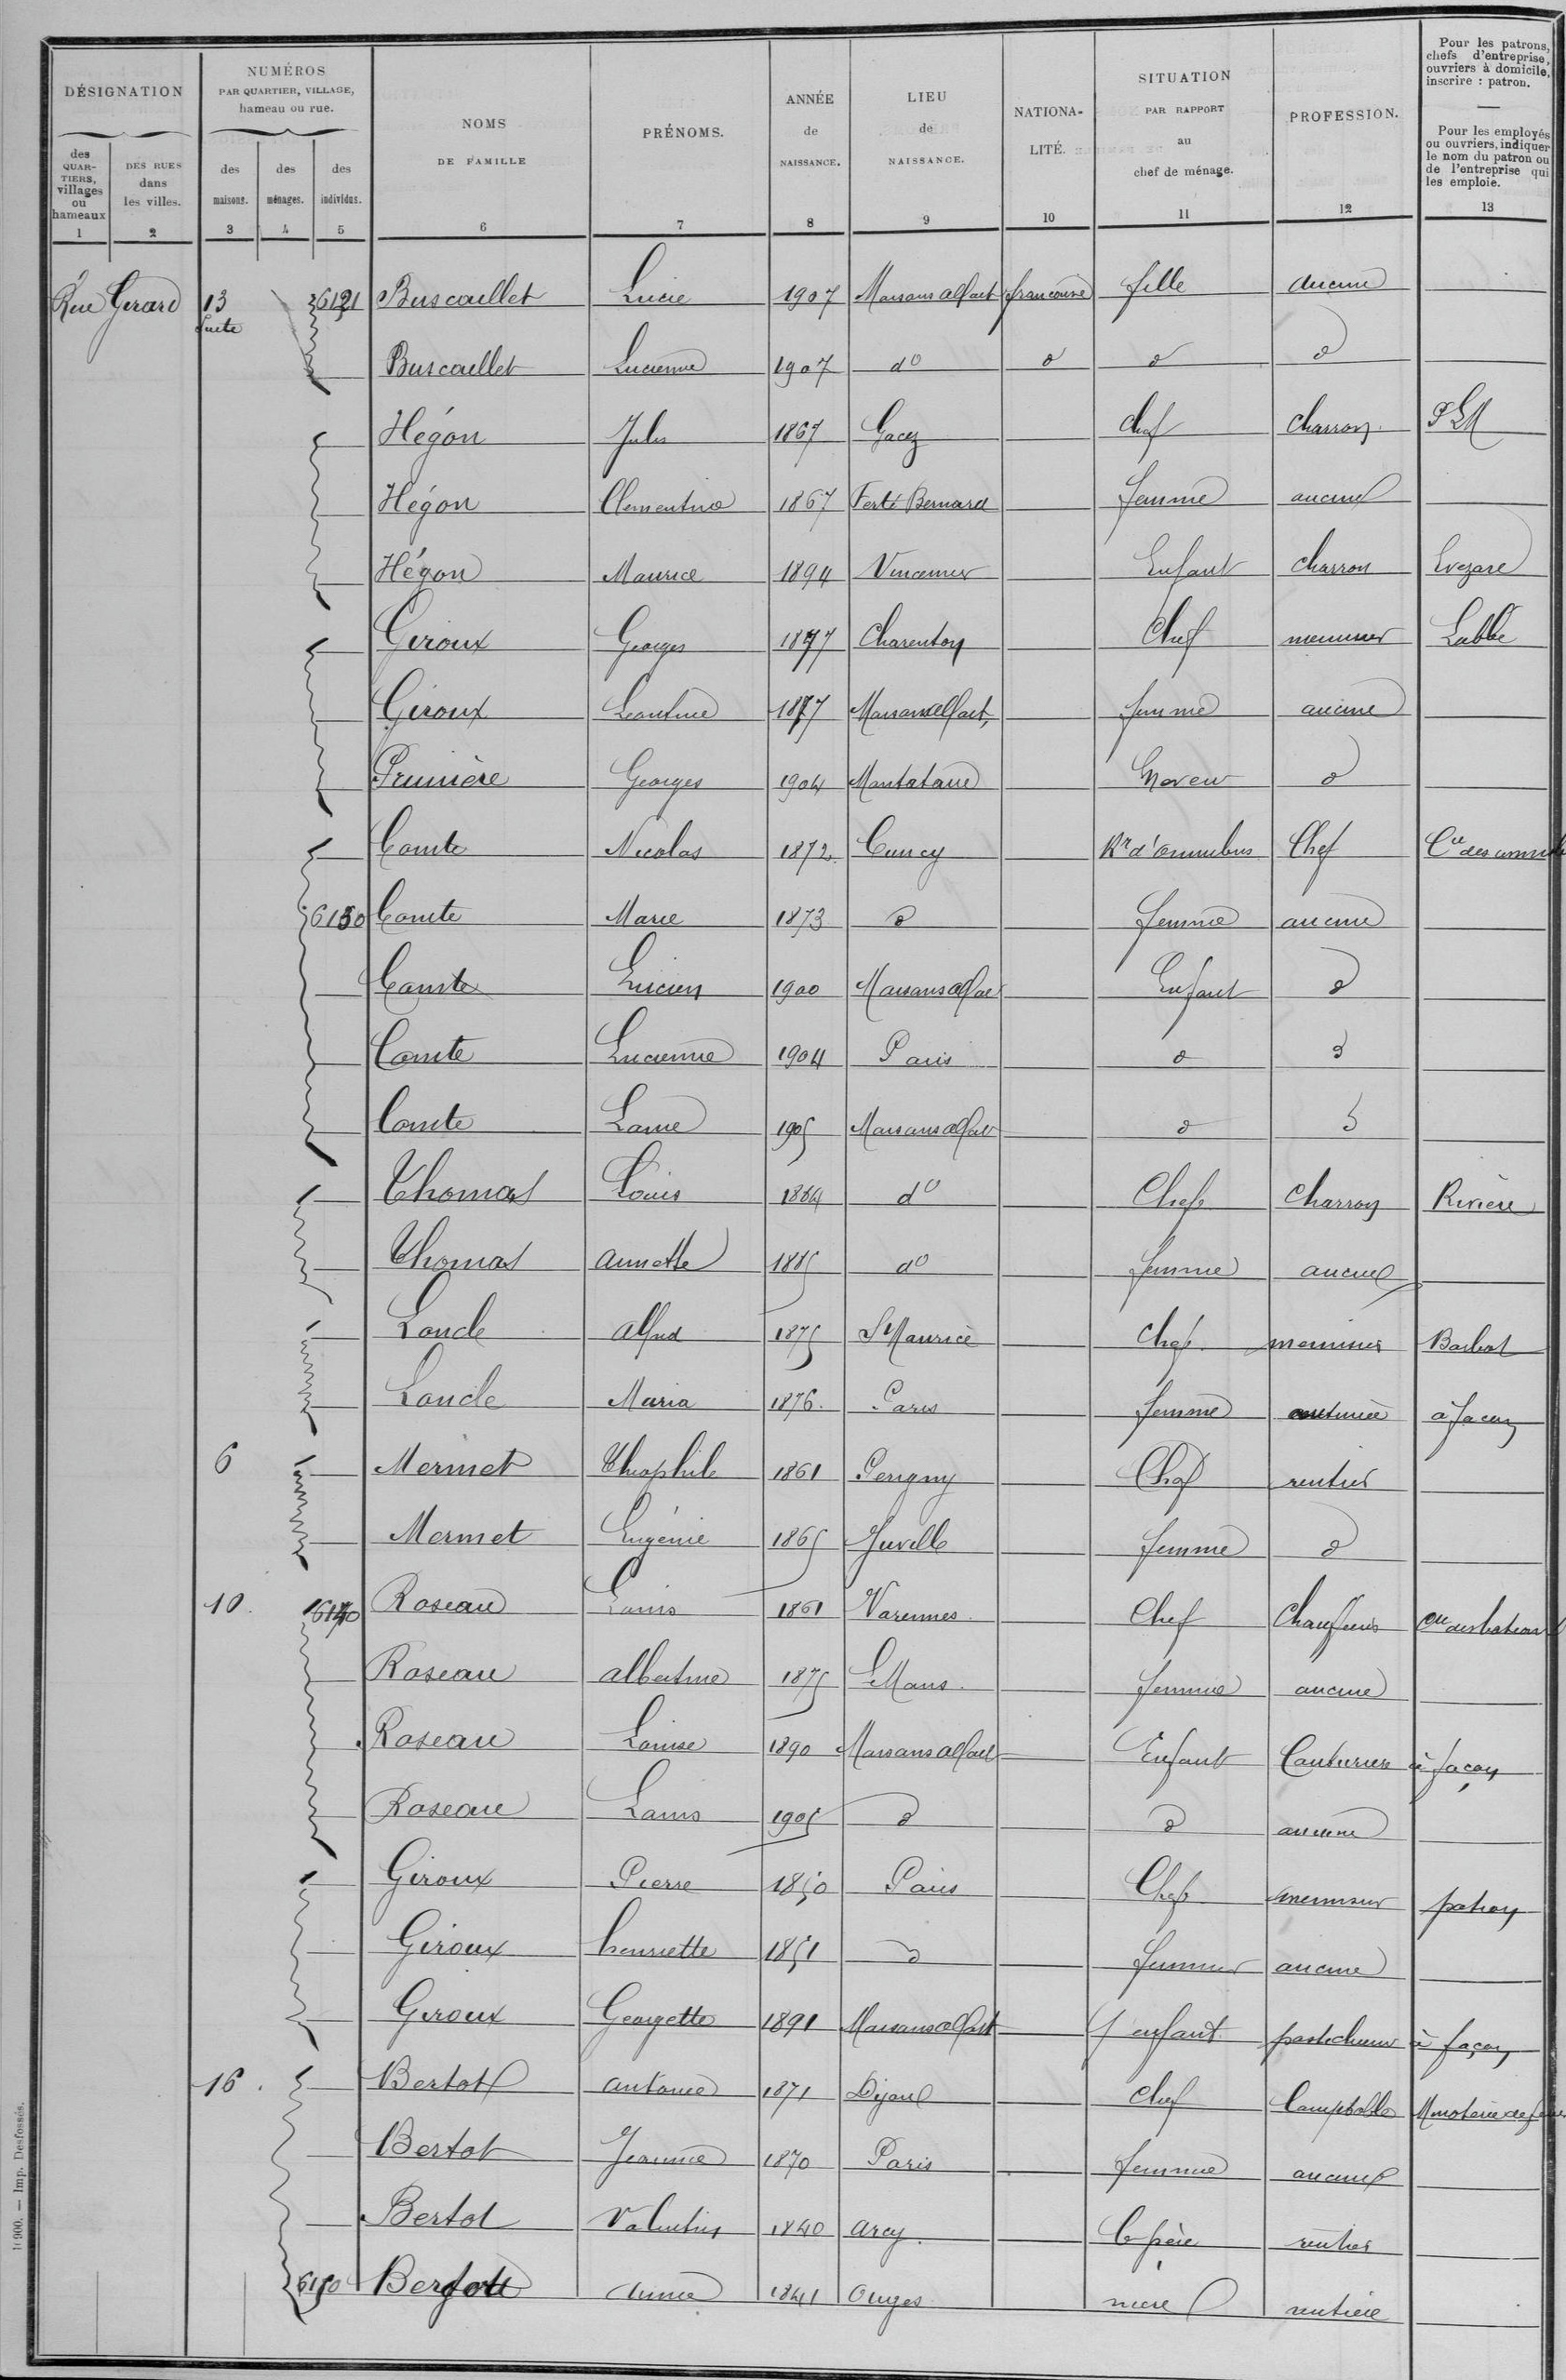 DÉSIGNATION
des QUAR-TIERS, villages ou hameaux
DES RUES dans les villes.
NUMÉROS
PAR QUARTIER, VILLAGE,
hameau ou rue.
des maisons.
des ménages.
des individus.
NOMS
DE FAMILLE
PRÉNOMS.
ANNÉE
de
NAISSANCE.
LIEU
de
NAISSANCE.
NATIONA-
LITÉ.
SITUATION
PAR RAPPORT
au
chef de ménage.
PROFESSION.
Pour les patrons,
chefs d'entreprise,
ouvriers à domicile,
inscrire : patron.
Pour les employés
ou ouvriers, indiquer
le nom du patron ou
de l'entreprise qui
les emploie.
1 2 3 4 5 6 7 8 9 10 11 12 13
Rue Gerard 13 6121 Buscaillet Lucie 1907 Maisons alfort française fille aucune
Suite
Buscaillet Lucienne 1907 do d d d
Hégon Jules 1867 Gacez chef charron PLM
Hégon Clementine 1867 Ferté Bernard femme aucune
Hégon Maurice 1894 Vincennes Enfant charron
Giroux Georges 1877 Charenton Chef menuisier Labbé
Giroux Leontine 1877 Maisons alfort femme aucune
Prunière Georges 1904 Neveu d
Comte Nicolas 1872 Cuncy Rr d'omnibus Chef Cie des omnib
6130 Comte Marie 1873 d femme aucune
Comte Lucien 1900 Maisons alfort Enfant d
Comte Lucienne 1904 Paris d d
Comte 1905 Maisons alfort d d
Thomas Louis 1884 do Chef Charron Rivière
Thomas annette 1885 do femme aucune
Loncle alfred 1875 St Maurice chef menuisier Barbot
Loncle Maria 1876 Paris femme couturière à façon
6 Mermet Théophile 1861 Perigny Chef rentier
Mermet Eugénie 1865 Juville femme d
10 6140 Roseau Louis 1861 Varennes Chef Chauffeur Cie des bateaux
Roseau albertine 1875 Le Mans femme aucune
Roseau Louise 1890 Maisons alfort Enfant Couturière à façon
Roseau Louis 1905 d d aucune
Giroux Pierre 1850 Paris Chef menuisier patron
Giroux henriette 1851 d femme aucune
Giroux Georgette 1891 Maisons alfort enfant à façon
16 Bertot antoine 1871 Dijon chef Comptable
Bertot Jeanne 1870 Paris femme aucune
Bertot Valentin 1840 arcy père rentier
6150 Bertot Anne 1841 Ouges mère rentière
1(900. — Imp. Desfossés.